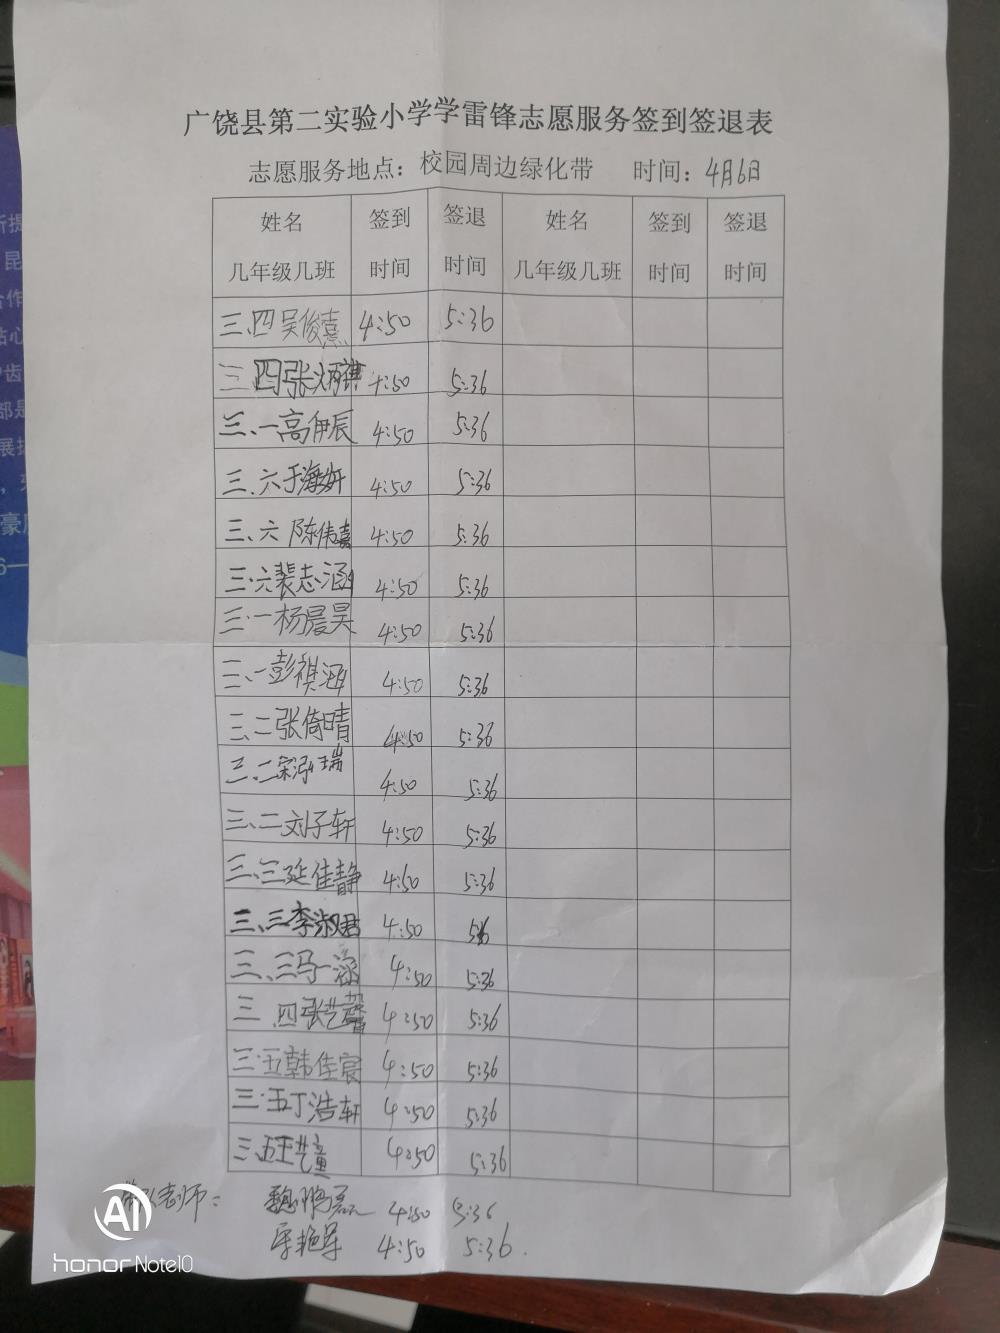 广饶县第二实验小学学雷锋志愿服务签到签退表
志愿服务地点：校园周边绿化带 时间：4月6日
姓名 签到 签退 姓名 签到 签退
几年级几班 时间 时间 几年级几班 时间 时间
三.四吴俊熹 4:50 5:36
三.四张炳祺 4:50 5:36
三、一高伊辰 4:50 5:36
三.六于海妍 4:50 5:36
三、六 陈伟嘉 4:50 5:36
三·六裴志涵 4:50 5:36
三·一杨晨昊 4:50 5:36
三、一彭祺涵 4:50 5:36
三、二张倚晴 4:50 5:36
三、二宋泓瑞 4:50 5:36
三、二刘子轩 4:50 5:36
三、三延佳静 4:50 5:36
三、三李淑君 4:50
三、三马一涵 4:50 5:36
三 .四张艺馨 4:50 5:36
三·五韩佳宸 4:50 5:36
三·五丁浩轩 4:50 5:36
三.五王艺童 4:50 5:36
老师： 魏鹏磊 4:50 5:36
艳 4:50 5:36.
AI
honor Note10